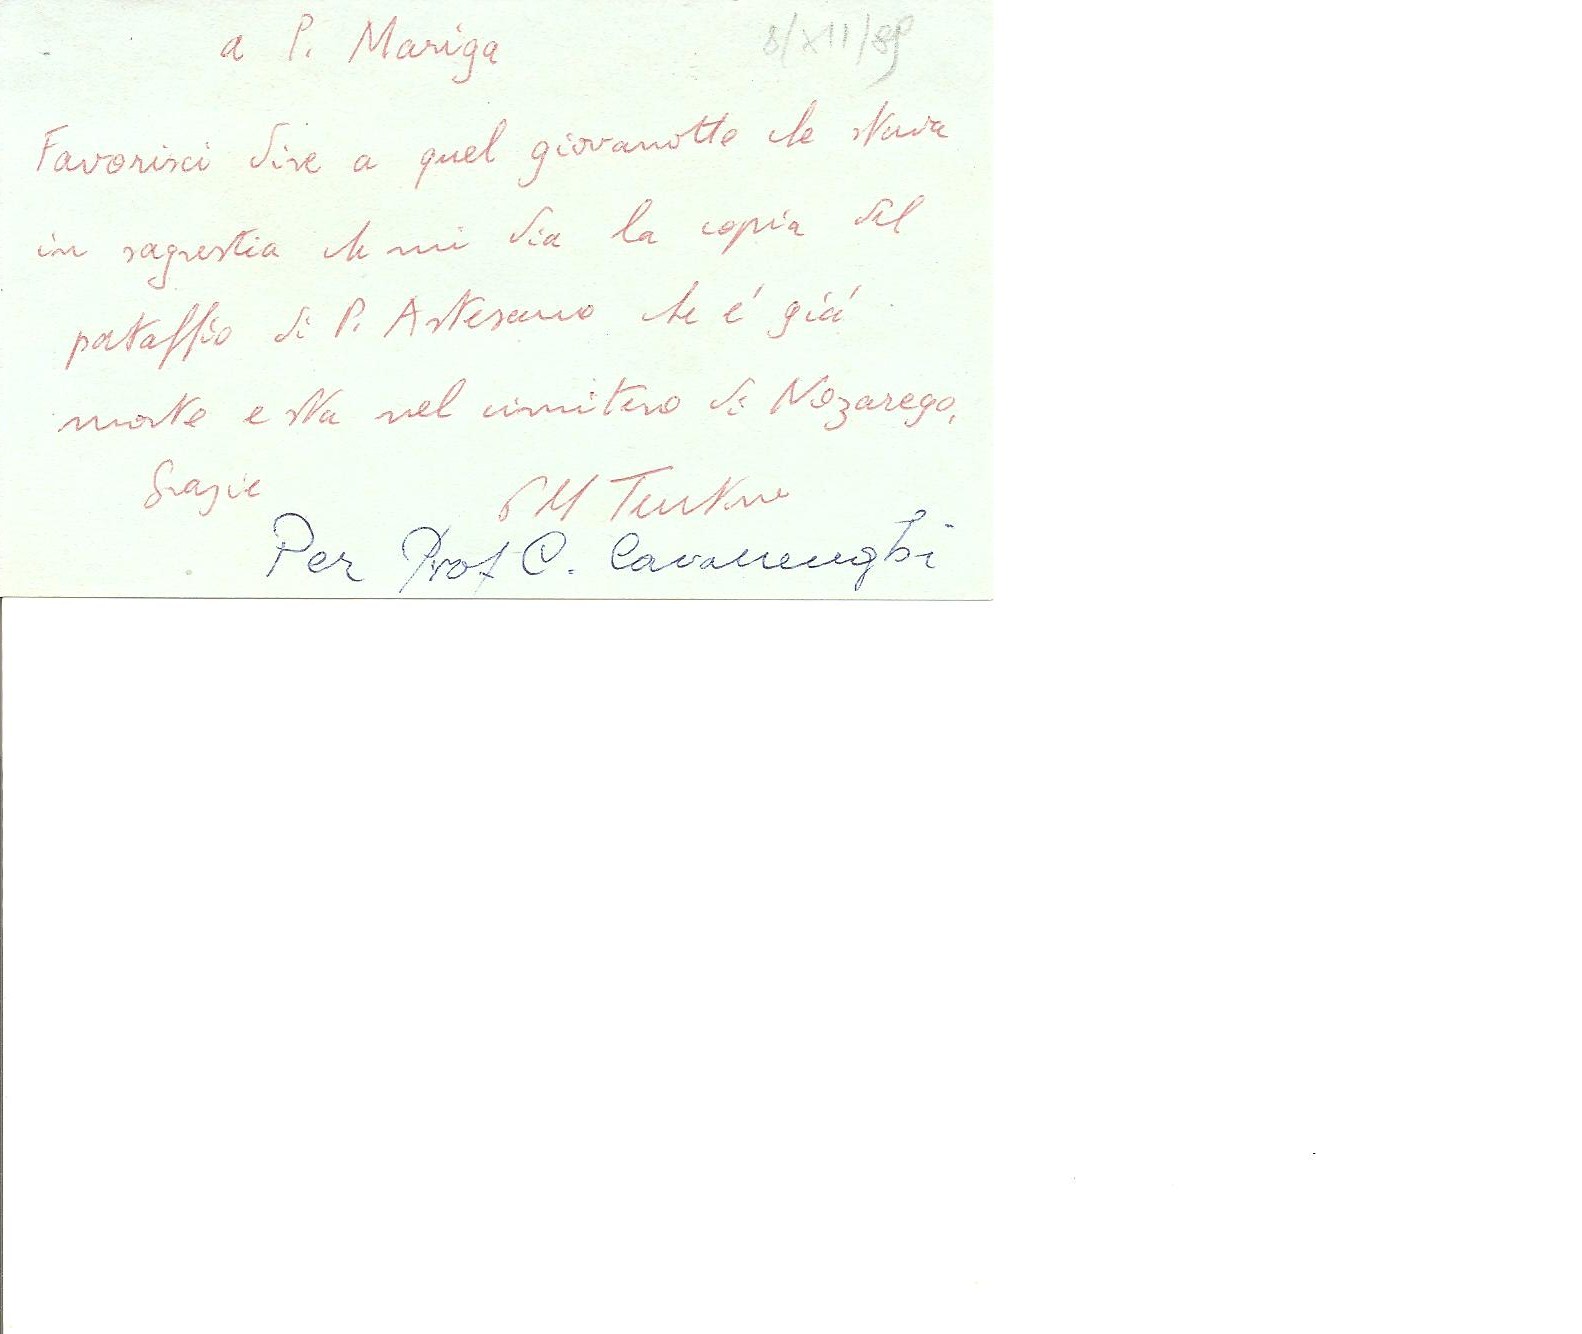 a P. Mariga 8/XII/89
Favorisci dire a quel giovanotto che stava
in sagrestia che mi dia la copia del
pataffio di P. Artesano che é giá
morto e sta nel cimitero di Nozarego,
Grazie PM
Per Prof C. Cavallenghi